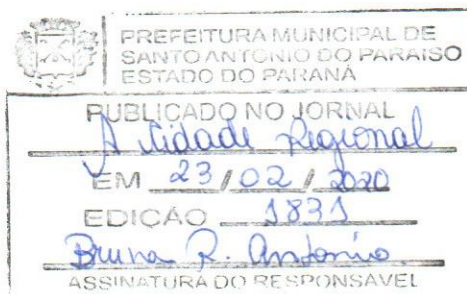 PREFEITURA MUNICIPAL DE
SANTO ANTONIO DO PARAISO
ESTADO DO PARANÁ
PUBLICADO NO JORNAL
A Cidade Regional
EM 23/02/2020
EDIÇÃO 1831
Bruna R. Antonio
ASSINATURA DO RESPONSAVEL